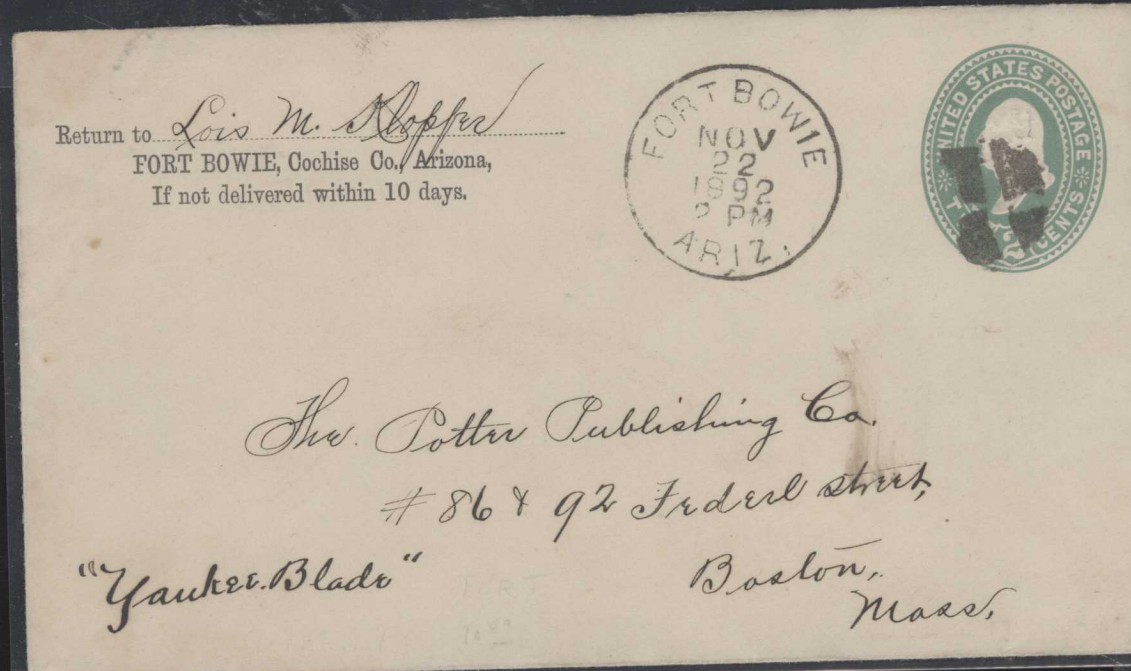 Return to Lois M. Klopfer
FORT BOWIE, Cochise Co., Arizona,
If not delivered within 10 days.
FORT BOWIE
NOV
22
1892
2 PM
ARIZ.
UNITED STATES POSTAGE
CENTS
The Potter Publishing Co.
# 86 & 92 Federl street,
"Yankee Blade"
Boston,
Mass.